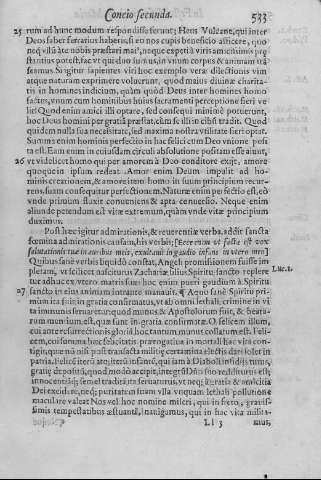 Concio secunda. 533
25 rum ad hunc modum respondisse ferunt; Heus Vulcane, qui inter
Deos faber ferrarius haberis, si eo nos cupis beneficio afficere, quo
neq; vllū àte nobis præstari mai', neque expeti à viris amicissimis præ
stantius potest, fac vt qui duo sumus, in vnum corpus & animam trā
seamus. Si igitur sapientes viri hoc exemplo veræ dilectionis vim
atque naturam exprimere voluerunt, quod maius diuinæ charita-
tis in homines indicium, quàm quòd Deus inter homines homo
factus, vnum cum hominibus huius sacramenti perceptione fieri ve-
lit? Quod enim amici illi optare, sed consequi minimè potuerunt,
hoc Deus homini per gratiā præstat, eius se illi in cibū tradit. Quod
quidem nulla sua necessitate, sed maxima nostra vtilitate fieri optat.
Summa enim hominis perfectio in hac felici cum Deo vnione posi
ta est. Eam enim in cuiusdam circuli absolutione positam esse aiunt,
26 vt videlicet homo qui per amorem à Deo conditore exijt, amore
quoque in ipsum redeat. Amor enim Deum impulit ad ho-
minis creationem, & amore item homo in suum principium recur-
rens, suam consequitur perfectionem. Naturæ enim perfectio est, eò
vnde priùum fluxit conueniens & apta conuersio. Neque enim
aliunde petendum est vitæ extremum, quàm vnde vitæ principium
duximus.
Post hæc igitur admirationis, & reuerentiæ verba, addit sancta
fœmina admirationis causam, his verbis; [Ecce enim vt facta est vox
salutationis tuæ in auribus meis, exultauit in gaudio infans in vtero meo]
Quibus sanè verbis liquidò constat, Angeli promissionem fuisse im
pletam, vt scilicet nasciturus Zachariæ filius Spiritu sancto replere Luc. 1.
tur adhuc ex vtero matris suæ: hoc enim pueri gaudium à Spiritu
27 sancto in eius animam intrante manauit. ¶ Aquo sanè Spiritu pri-
mùm ita fuit in gratia confirmatus, vt ab omni lethali crimine in vi
ta immunis seruaretur: quod munus & Apostolorum fuit, & beata-
rum mentium est, quæ sunt in gratia confirmatæ. O felicem illum,
cui ante resurrectionis gloriā hoc tantum munus collatum est. Feli-
cem, cui summa hæc felicitatis prærogatiua in mortali hac vita con-
tigit, quæ nō nisi post transacta militiæ certamina electis dari solet in
patria. Felicē iterū atq; iterū infantē, qui iam à Diaboli insidijs tutus,
gratiæ depositū, quod modò accepit, integrū Dño suo redditurus est;
innocentiāq; semel traditā ita seruaturus, vt neq; à gratia & amicitia
Dei excidere, neq; puritatem suam vlla vnquam lethali pollutione
maculare valeat. Nos vel hoc nomine miseri, qui in freto, grauis-
simis tempestatibus æstuantē, nauigamus, qui in hac vita milita-
Ll 3 mus,